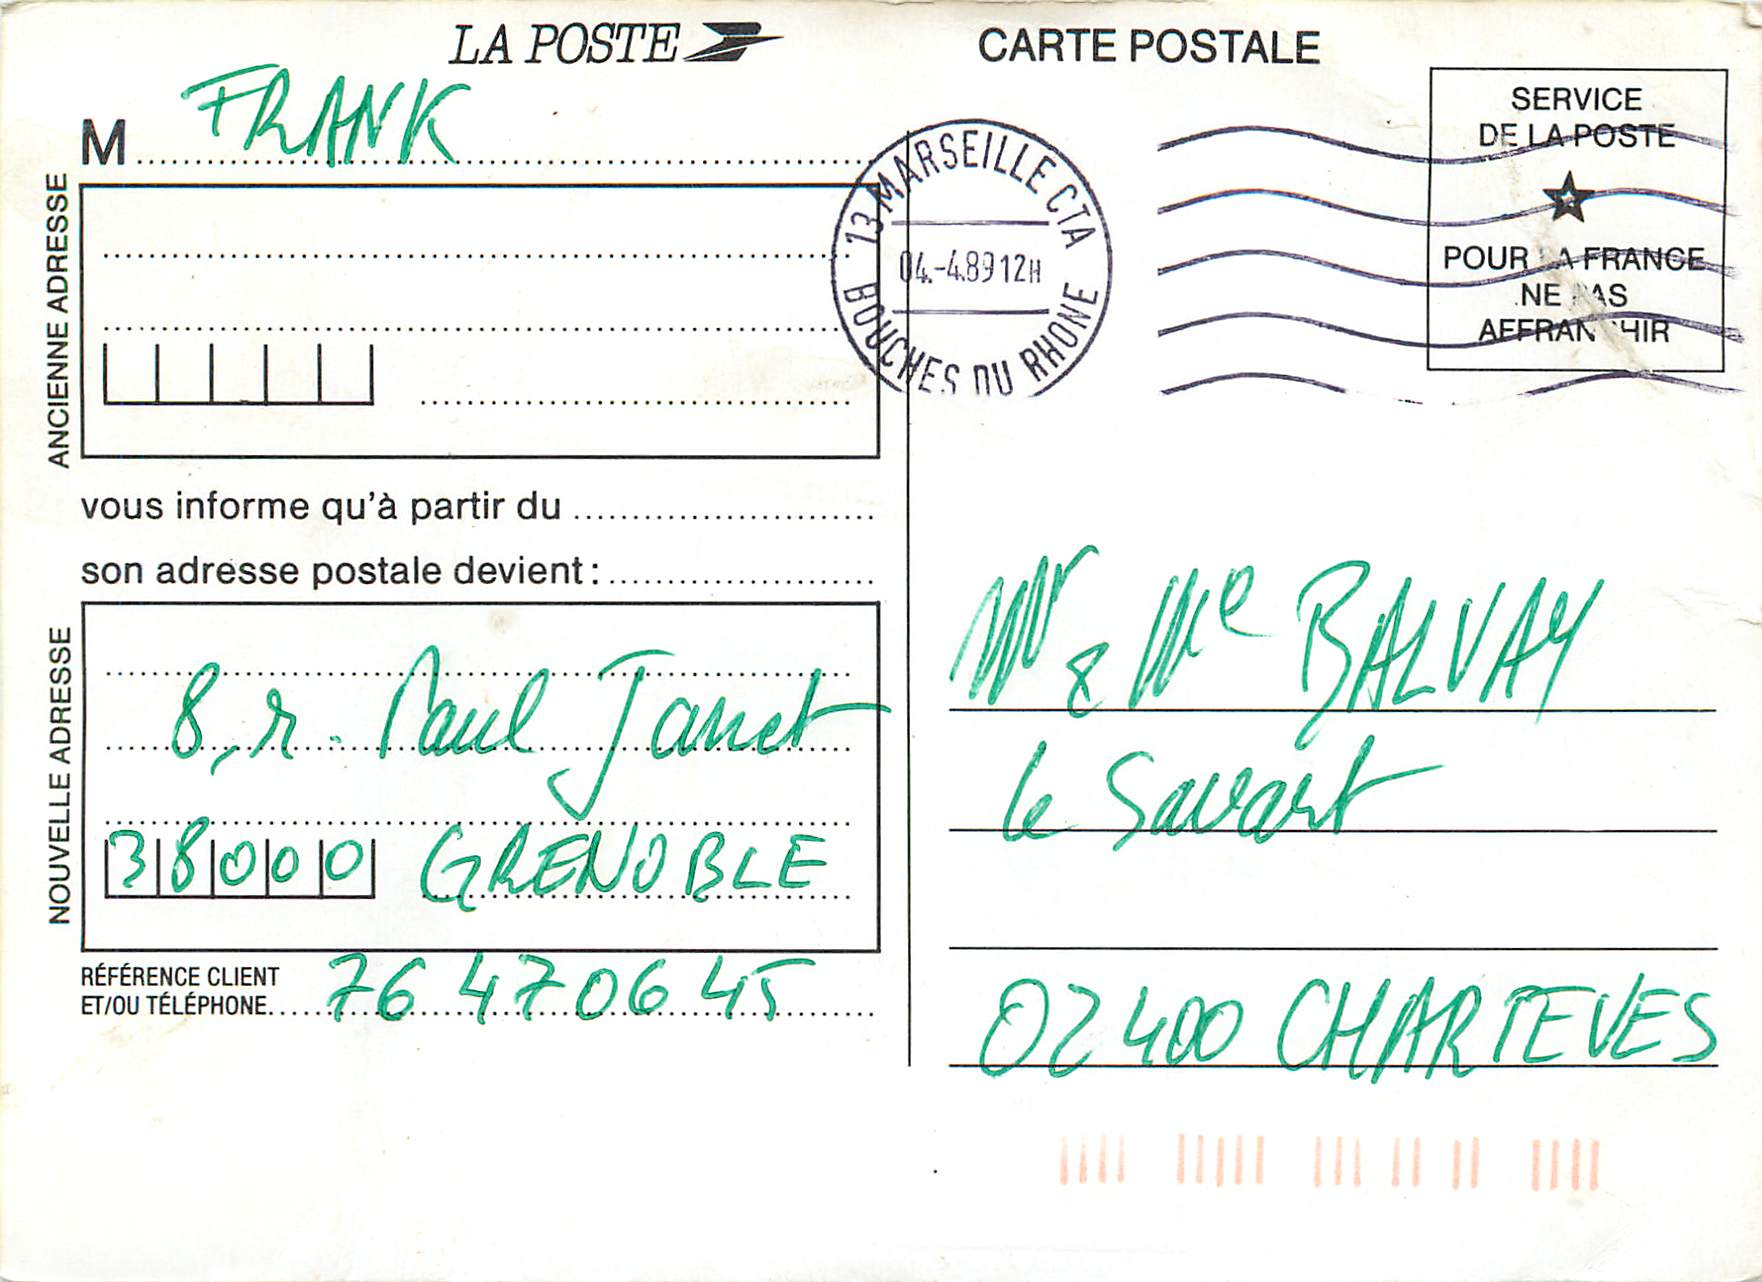 LA POSTE
CARTE POSTALE
M FRANK
ANCIENNE ADRESSE
vous informe qu'à partir du
son adresse postale devient :
NOUVELLE ADRESSE
8, r. Paul Janet
38000 GRENOBLE
RÉFÉRENCE CLIENT
ET/OU TÉLÉPHONE 76 47 06 45
13 MARSEILLE CTA
04.-4.89 12H
BOUCHES DU RHONE
SERVICE
DE LA POSTE
POUR LA FRANCE
NE PAS
AFFRANCHIR
Mr & Me BALVAY
le Savart
02400 CHARTEVES